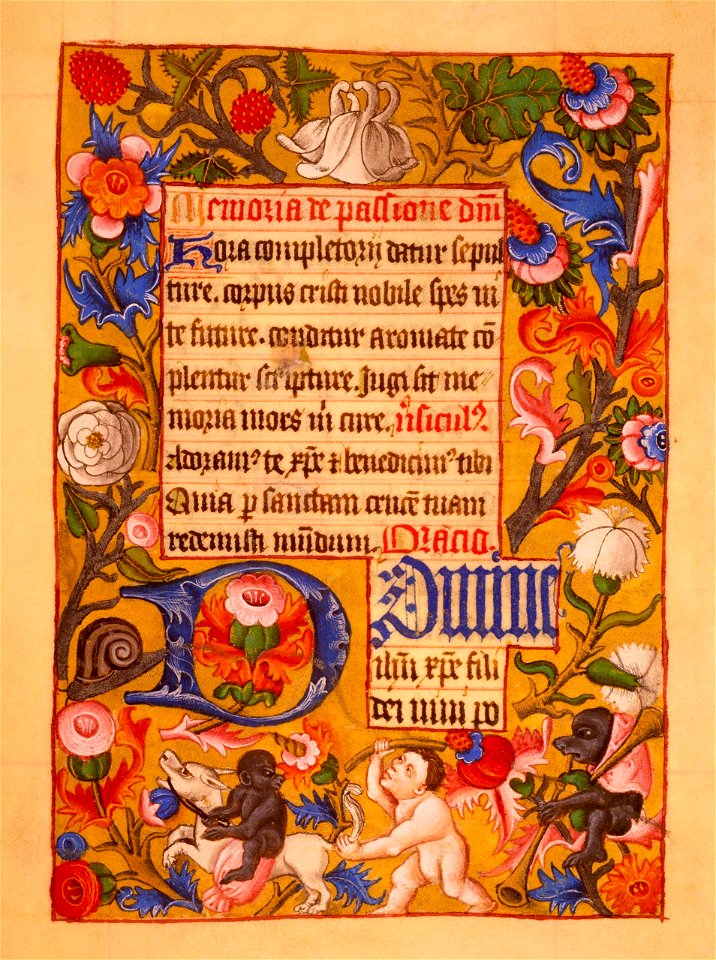 Memoria de passione dm̄
Hora completorij datur sepul
ture. corpus cristi nobile spes vi
te future. conditur aromate cō
plentur scripture. Jugi sit me
moria mors in cure. v̓sicul᷒
Adoram᷒ te xp̄e ⁊ benedicim᷒ tibi
Quia ꝑ sanctam crucē tuam
redemisti mūdum. Oracio.
Domine
ih̄u xp̄e fili
dei viui po